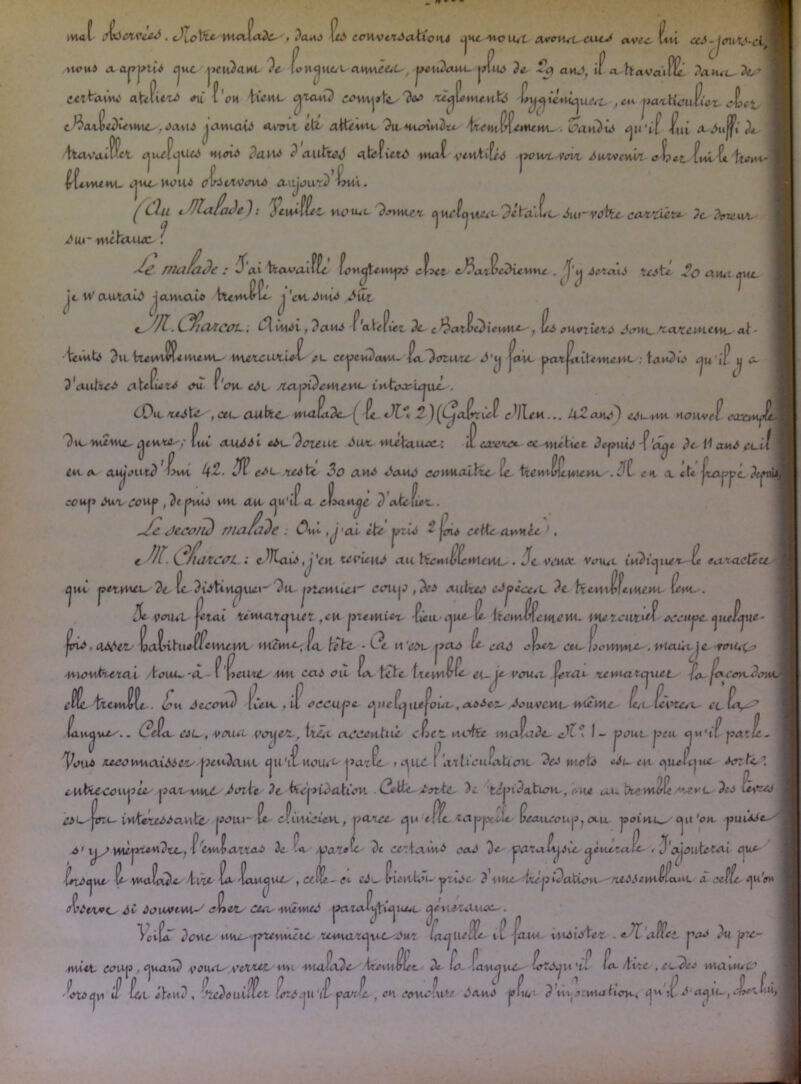 mal observées. Notre malade, dans les conversations que nous avons eues avec lui ces jours-ci,
nous a appris que pendant de longues années, pendant plus de 29 ans, il a travaillé dans de
certains ateliers où l'on tient grand compte des règlements hygiéniques, en particulier chez
, sans jamais avoir été atteint du moindre tremblement. Tandis qu'il lui a suffi de
travailler quelques mois dans d'autres ateliers mal ventilés pour voir survenir chez lui le trem-
blement que nous observons aujourd'hui.
(Au Malade): Veuillez nous donner quelques détails sur votre carrière de doreur
sur métaux?
Le malade: J'ai travaillé longtemps chez . J'y serais resté 20 ans que
je n'aurais jamais tremblé j'en suis sûr.
M. Charcot: Ainsi, dans l'atelier de , les ouvriers sont rarement at-
teints du tremblement mercuriel et cependant la dorure s'y fait parfaitement: tandis qu'il y a
d'autres ateliers où l'on est rapidement intoxiqué.
Du reste, cet autre malade (le N° 2) (Gabriel 42 ans) est un nouvel exemple
du même genre; lui aussi est doreur sur métaux: il exerce ce métier depuis l'âge de 11 ans et il
en a aujourd'hui 42. Il est resté 30 ans sans connaître le tremblement. Il en a été frappé depuis,
coup sur coup, depuis un an qu'il a changé d'atelier.
Le second malade: Oui, j'ai été pris 2 fois cette année.
M. Charcot: Mais, j'en reviens au tremblement. Je veux vous indiquer le caractère
qui permet de le distinguer du premier coup, des autres espèces de tremblement lent.
Je vous ferai remarquer, en premier lieu que le tremblement mercuriel occupe quelque-
fois, assez habituellement même, la tête. Ce n'est pas le cas chez cet homme, mais je vous
montrerai tout-à-l'heure un cas où la tête tremble et je vous ferai remarquer la façon dont
elle tremble. En second lieu, il occupe quelquefois, assez souvent même les lèvres et la
langue.. Cela est, vous voyez, très accentué chez notre malade N° 1 - pour peu qu'il parle.
Vous reconnaissez pendant qu'il nous parle, que l'articulation des mots est en quelque sorte
entrecoupée par une sorte de trépidation. Cette sorte de trépidation, ou un tremblement des lèvres
est fort intéressante pour le clinicien, parce qu'elle rappelle beaucoup, au point qu'on puisse
s'y méprendre, l'embarras de la parole de certains cas de paralysie générale. J'ajouterai que
lorsque le malade tire la langue, celle-ci est bientôt prise d'une trépidation ressemblant à celle qu'on
observe si souvent chez ces mêmes paralytiques généraux.
Voilà donc une première remarque sur laquelle il faut insister. N'allez pas du pre-
mier coup, quand vous verrez un malade trembler de la langue lorsqu'il la tire, et des mains
lorsqu'il les étend, bredouiller lorsqu'il parle, en conclure sans plus d'information, qu'il s'agit, chez lui,